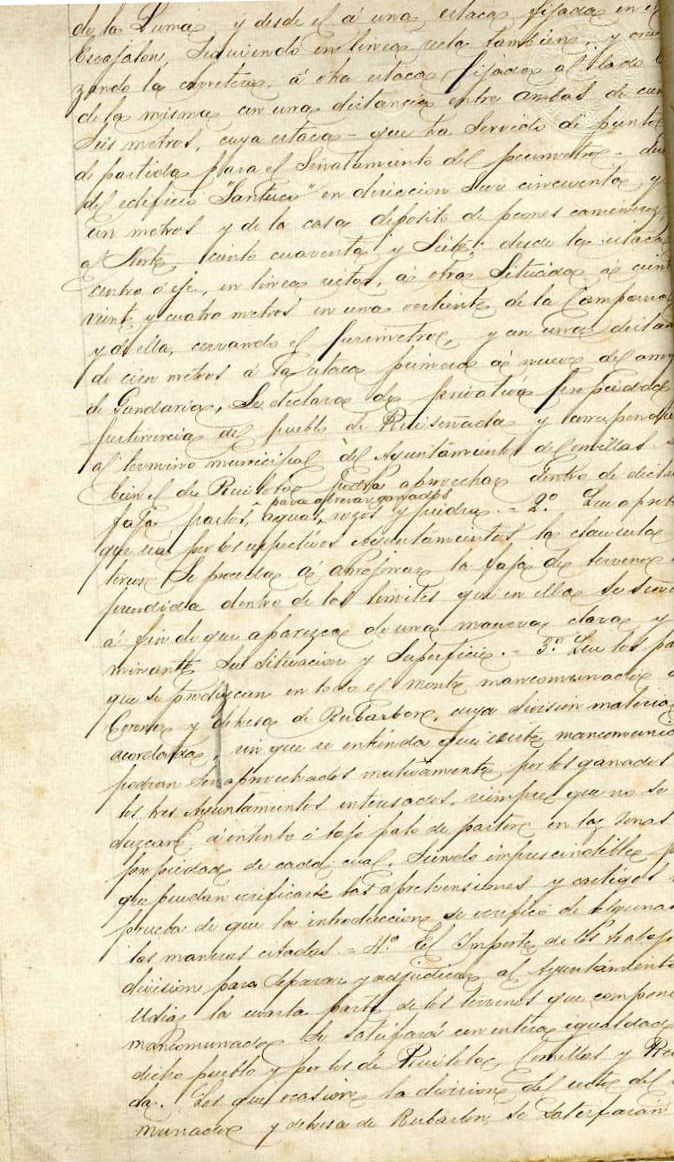 de la Luma y desde el á una estaca fijada en el
Escajalon, siguiendo en linea recta tambien, y cru
zando la carretera, á otra estaca fijada al lado
de la misma en una distancia entre ambas de cua
seis metros, cuya estaca = que ha servido de punto
de partida para el señalamiento del perimetro = di
del edificio "Santuco" en direccion Sur cincuenta y
un metros y de la casa depósito de peones camineros
al Norte ciento cuarenta y siete; desde la estaca
centro ó eje, en linea recta, á otra situada á cien
veinte y cuatro metros en una vertiente de la
y de ella, cerrando el perimetro, y en una distan
de cien metros á la estaca primera á nueve del arroy
de Gandaria, se declara de privativa propiedad
pertenencia del pueblo de Ruiseñada y corresponde
al termino municipal del Ayuntamiento de Comillas
bien el de Ruiloba podrá aprovechar dentro de dicha
para abrevar ganados
faja pastos, aguas, rozos y piedra. = 2º Que aprob
que sea por los respectivos Ayuntamientos la clausula
se proceda á amojonar la faja de terreno
prendida dentro de los limites que en ella se
á fin de que aparezca de una manera clara y
minante su situacion y superficie. = 3º Que los pas
que se produzcan en todo el monte mancomunado
Corona y dehesa de Rubarbon, cuya division material
acordada, sin que se entienda que existe mancomunid
podrán ser aprovechados mutuamente por los ganados
los tres Ayuntamientos interesados, siempre que no se
duzcan, á intento ó bajo palo de pastor en las zonas
propiedad de cada cual, siendo imprescindible
que puedan verificarse las aprehensiones y castigos
prueba de que la introduccion se verificó de alguna
las maneras citadas. = 4º El Importe de los trabajo
division para separar y adjudicar al Ayuntamiento
Udias la cuarta parte de los terrenos que compone
mancomunado se satisfará con entera igualdad
dicho pueblo y por los de Ruiloba, Comillas y
da. Los que ocasione la division del resto del
munado y dehesa de Rubarbon, se satisfarán